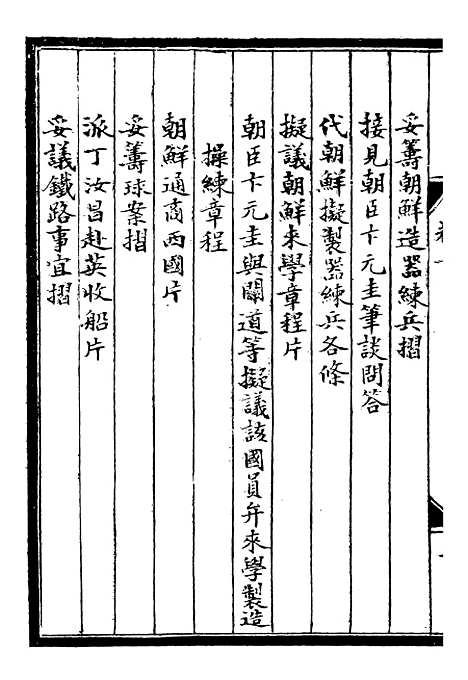 妥籌朝鮮造器練兵摺
接見朝臣卞元圭筆談問答
代朝鮮擬製器練兵各條
擬議朝鮮來學章程片
朝臣卞元圭與關道等擬議該國員弁來學製造
操練章程
朝鮮通商西國片
妥籌球案摺
派丁汝昌赴英收船片
妥議鐵路事宜摺